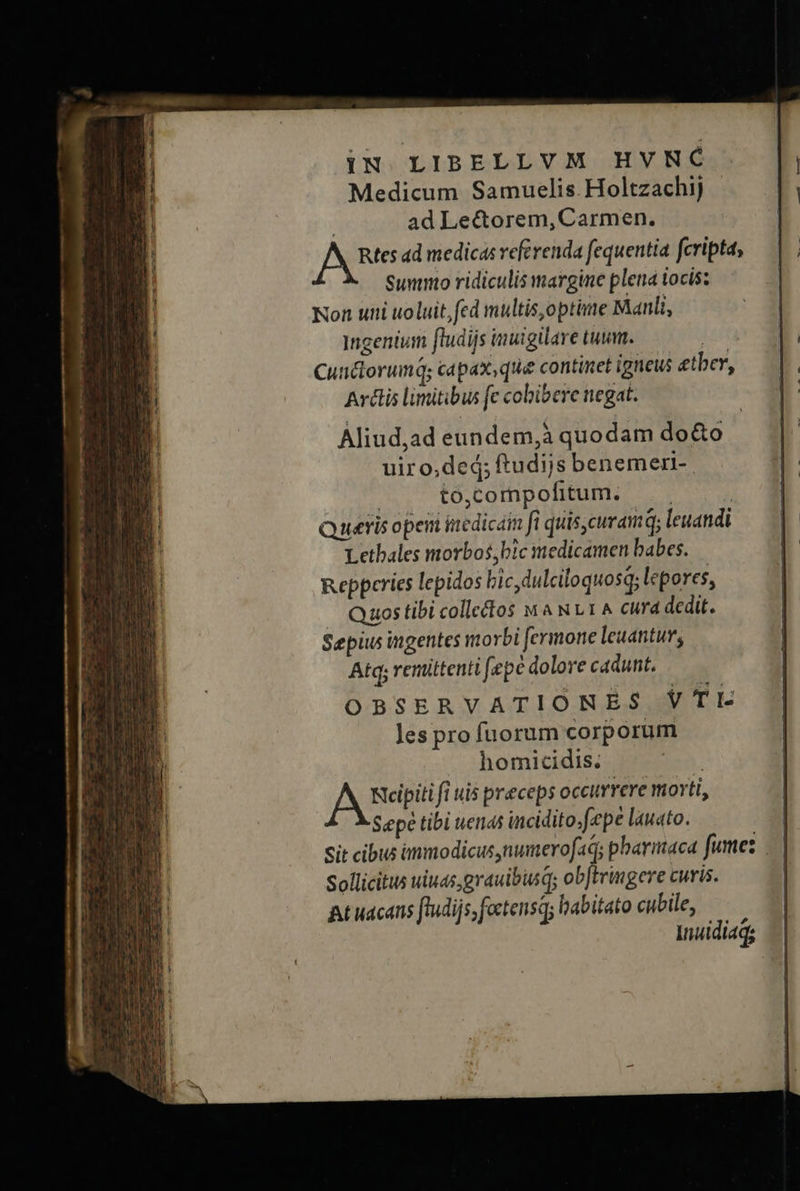 IN LIBELLVM HVNC
Medicum Samuelis Holtzachij
ad Lectorem, Carmen.
ARtes ad medicas referenda sequentia scripta,
Summo ridiculis margine plena iocis:
Non uni uoluit, sed multis, optime Manli,
Ingenium studijs inuigilare tuum.
Cunctorumq́; capax, quæ continet igneus æther,
Arctis limitibus se cohibere negat.
Aliud, ad eundem, à quodam docto
uiro, deq́; studijs benemeri-
to, compositum.
Quæris opem medicam si quis, curamq́; leuandi
Lethales morbos, hîc medicamen habes.
Repperies lepidos hîc, dulciloquosq́; lepores,
Quos tibi collectos MANLIA cura dedit.
Sæpius ingentes morbi sermone leuantur,
Atq; remittenti sæpè dolore cadunt.
OBSERVATIONES VTI-
les pro suorum corporum
homicidis.
ANcipiti si uis præceps occurrere morti,
Sæpè tibi uenas incidito, sæpè lauato.
Sit cibus immodicus, numerosaq́; pharmaca sumes
Sollicitus uiuas, grauibusq́; obstringere curis.
At uacans studijs, fœtensq́; habitato cubile,
Inuidiaq́;